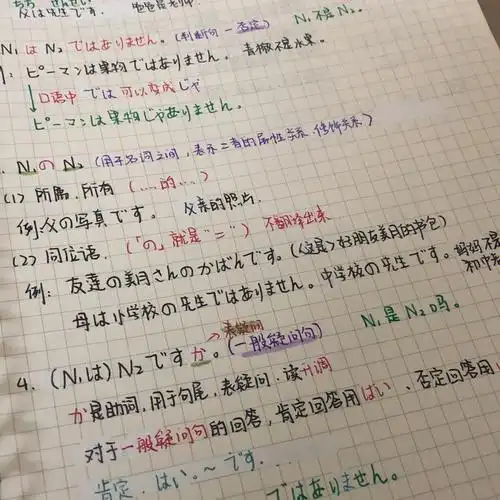 ちち せんせい
父は先生です。
N₁ は N₂ ではありません。(判断句 — 否定) N₁ 不是 N₂。
ピーマンは果物ではありません。 青椒不是水果。
口语中 では 可以变成 じゃ
ピーマンは果物じゃありません。
N₁ の N₂ (用于名词之间,表示二者的属性关系.修饰关系)
(1) 所属.所有 (....的...)
例:父の写真です。 父亲的照片
(2) 同位语. (“の”就是“=”) 不翻译出来
例: 友達の美月さんのかばんです。(这是)好朋友美月的书包)
母は小学校の先生ではありません。中学校の先生です。 妈妈不是
N₁ 是 N₂ 吗。
表疑问
4. (N₁は) N₂ ですか。(一般疑问句)
か是助词,用于句尾,表疑问.读升调
对于一般疑问句的回答,肯定回答用はい、否定回答用
肯定. はい、~です.
ではありません。